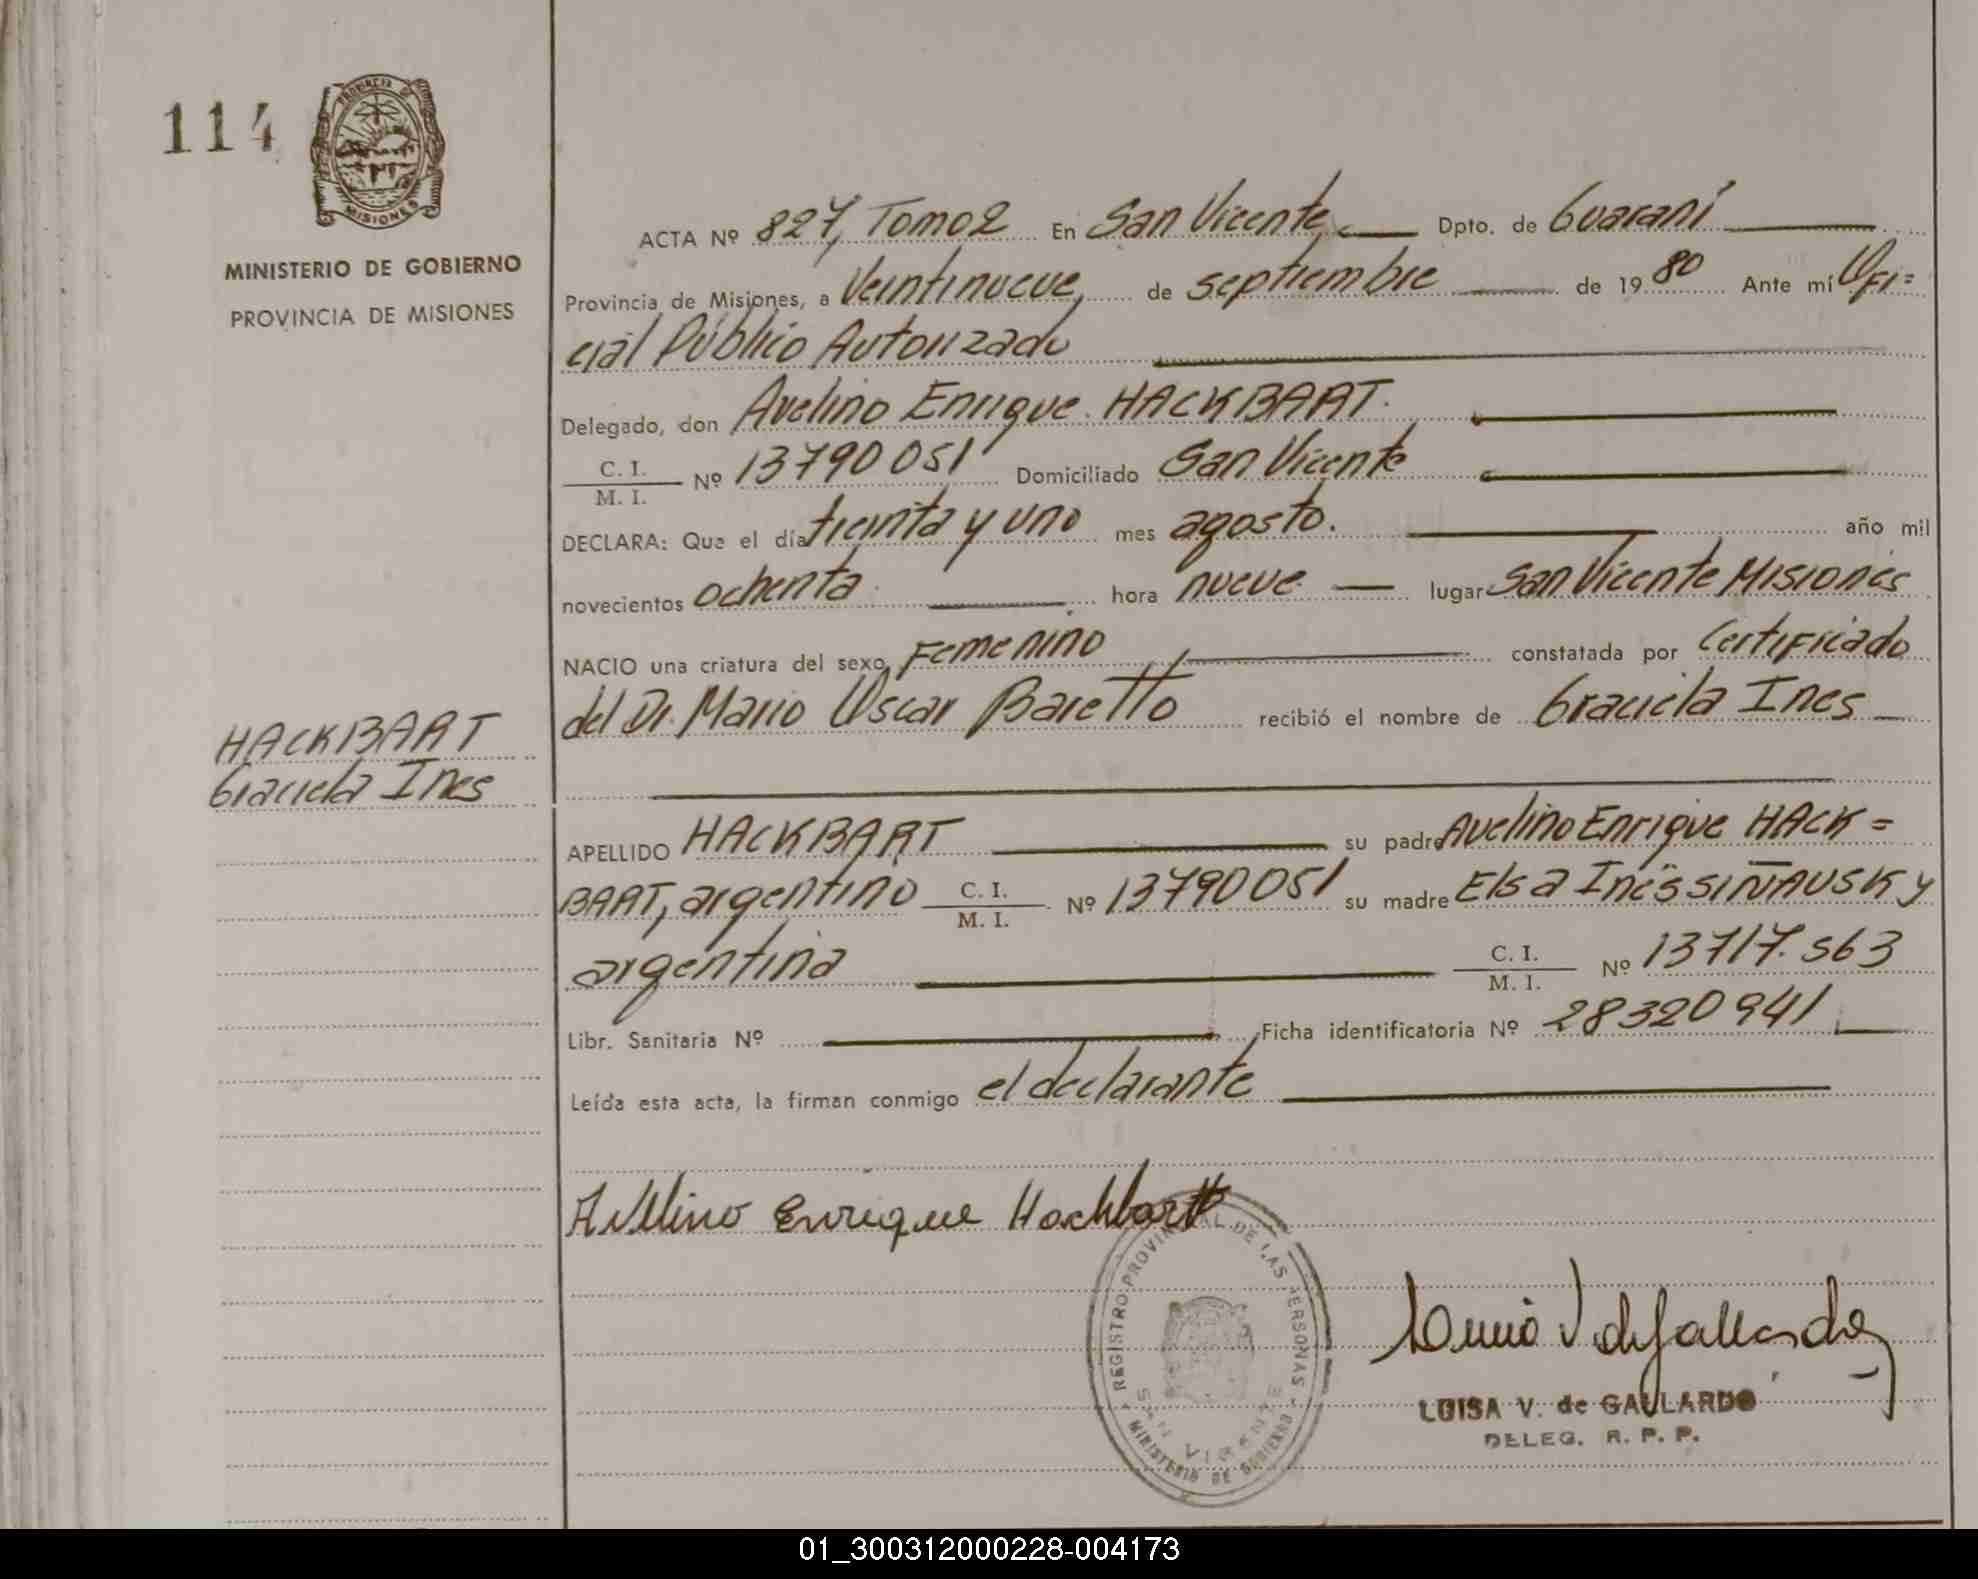 114
PROVINCIA DE
MISIONES
MINISTERIO DE GOBIERNO
PROVINCIA DE MISIONES
ACTA Nº 827, Tomo 2 En San Vicente Dpto. de Guaraní
Provincia de Misiones, a Veintinueve, de septiembre de 1980 Ante mí Ofi=
cial Público Autorizado
Delegado, don Avelino Enrique HACKBART.
C. I.
M. I. Nº 13790051 Domiciliado San Vicente
DECLARA: Que el día treinta y uno mes agosto. año mil
novecientos ochenta hora nueve lugar San Vicente Misiones
NACIO una criatura del sexo Femenino constatada por Certificado
del Dr. Mario Oscar Baretto recibió el nombre de Graciela Ines
HACKBART
Graciela Ines
APELLIDO HACKBART su padre Avelino Enrique HACK=
BART, argentino C. I.
M. I. Nº 13790051 su madre Elsa Inés SIÑAUSKY
argentina C. I.
M. I. Nº 13717.563
Libr. Sanitaria Nº Ficha identificatoria Nº 28320941
Leída esta acta, la firman conmigo el declarante
Avelino Enrique Hackbart
REGISTRO PROVINCIAL DE LAS PERSONAS
SAN VICENTE
MINISTERIO DE GOBIERNO
LUISA V. de GALLARDO
DELEG. R. P. P.
01_300312000228-004173